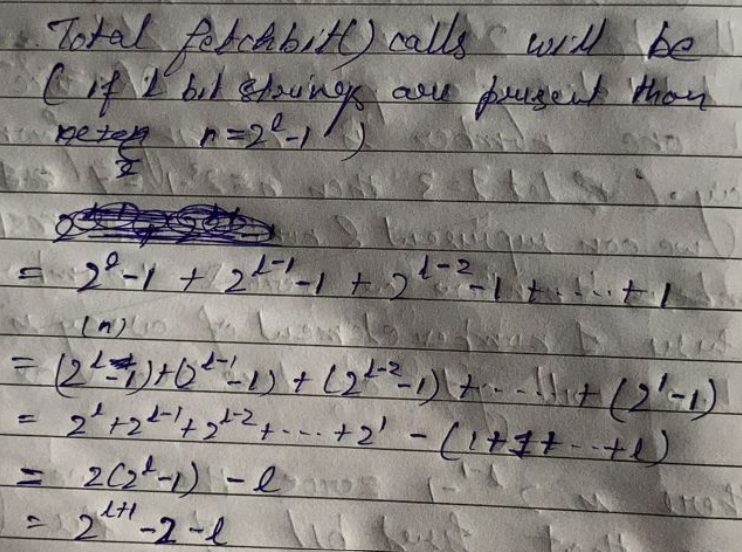 Total fetchbit() calls will be
( if l bit strings are present than
n=2^l-1 )
= 2^l-1 + 2^{l-1}-1 + 2^{l-2}-1 + ..... + 1
(n)
= (2^l-1)+(2^{l-1}-1) + (2^{l-2}-1) + ...... + (2^1-1)
= 2^l+2^{l-1}+2^{l-2}+....+2^1 - (1+1+...+1)
= 2(2^l-1) - l
= 2^{l+1}-2-l